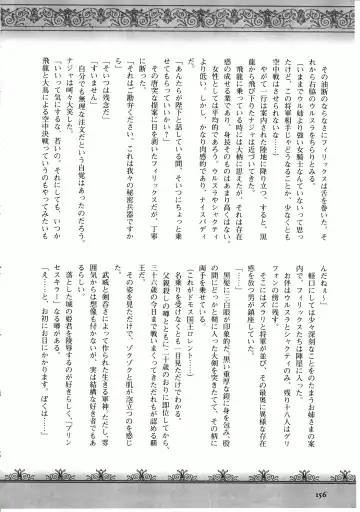 その油断のならなさにフィリックスは舌を巻いた。そ
れから右脇のウルスラをちらりとみる。
(いままでウルスラより強い女騎士なんていないって思っ
てたけど、この将軍相手じゃどうなることか、少なくとも
空中戦はさせられないな……)
やがて一行が案内された陸地に降り立つ。すると、黒
龍から飛び下りたナジャは近づいてきた。
飛龍に乗っている時には大柄に思われたが、それは存在
感の成せる業であり、身長そのものはあまり高くはない。
女性としては平均的であろう。ウルスラやシャクティ
より低い。しかし、かなり肉感的であり、ナイスバディ
だ。
「あんたらが陛下と話している間、そいつにちょっと乗
せてもらっていいかい?」
その唐突な提案に目を剥いたフィリックスだが、丁寧
に断った。
「それはご勘弁ください。これは我々の秘密兵器ですか
ら」
「そいつは残念だ」
「すいません」
自分でも無理な注文だという自覚はあったのだろう。
ナジャは呵々大笑した。
「いいって気にするな、若いの。それにしても、いつか
飛龍と大鳥による空中決戦っていうのもやってみたいも
んだねぇ～」
軽口にしては少々深刻なことをのたまうお姉さまの案
内で、フィリックスたちは陣屋に入った。
お伴はウルスラとシャクティのみ、残り十八人はグリ
フォンの傍に残す。
そこにはズラリと将軍が並び、その最奥に異様な存在
感を放つ男が鎮座していた。
黒髪に三白眼が印象的だ。黒い重厚な鎧に身を包み、股
の間にどっかと鞘に入った大剣を突きたてて、その柄に
両手を乗せている。
(これがドモス国王ロレント……)
名乗りを受けなくとも一目見ただけでわかった。
父親殺しの噂とともに二十歳のおりに即位してから、
三十六歳の今日まで戦いまくってきただれもが認める覇
王だ。
その姿を見ただけで、ゾクゾクと肌が泡立つのを感じ
る。
武威と剣呑さによって作られた生きる軍神。ただし、雰
囲気からは想像も付かないが、実は結構な好き者でもあ
るらしい。
落とした城の姫君を陵辱するのが好きらしく、〈プリン
セスキラー〉なる噂がある。
「え……と、お初にお目にかかります。ぼくは……」
156